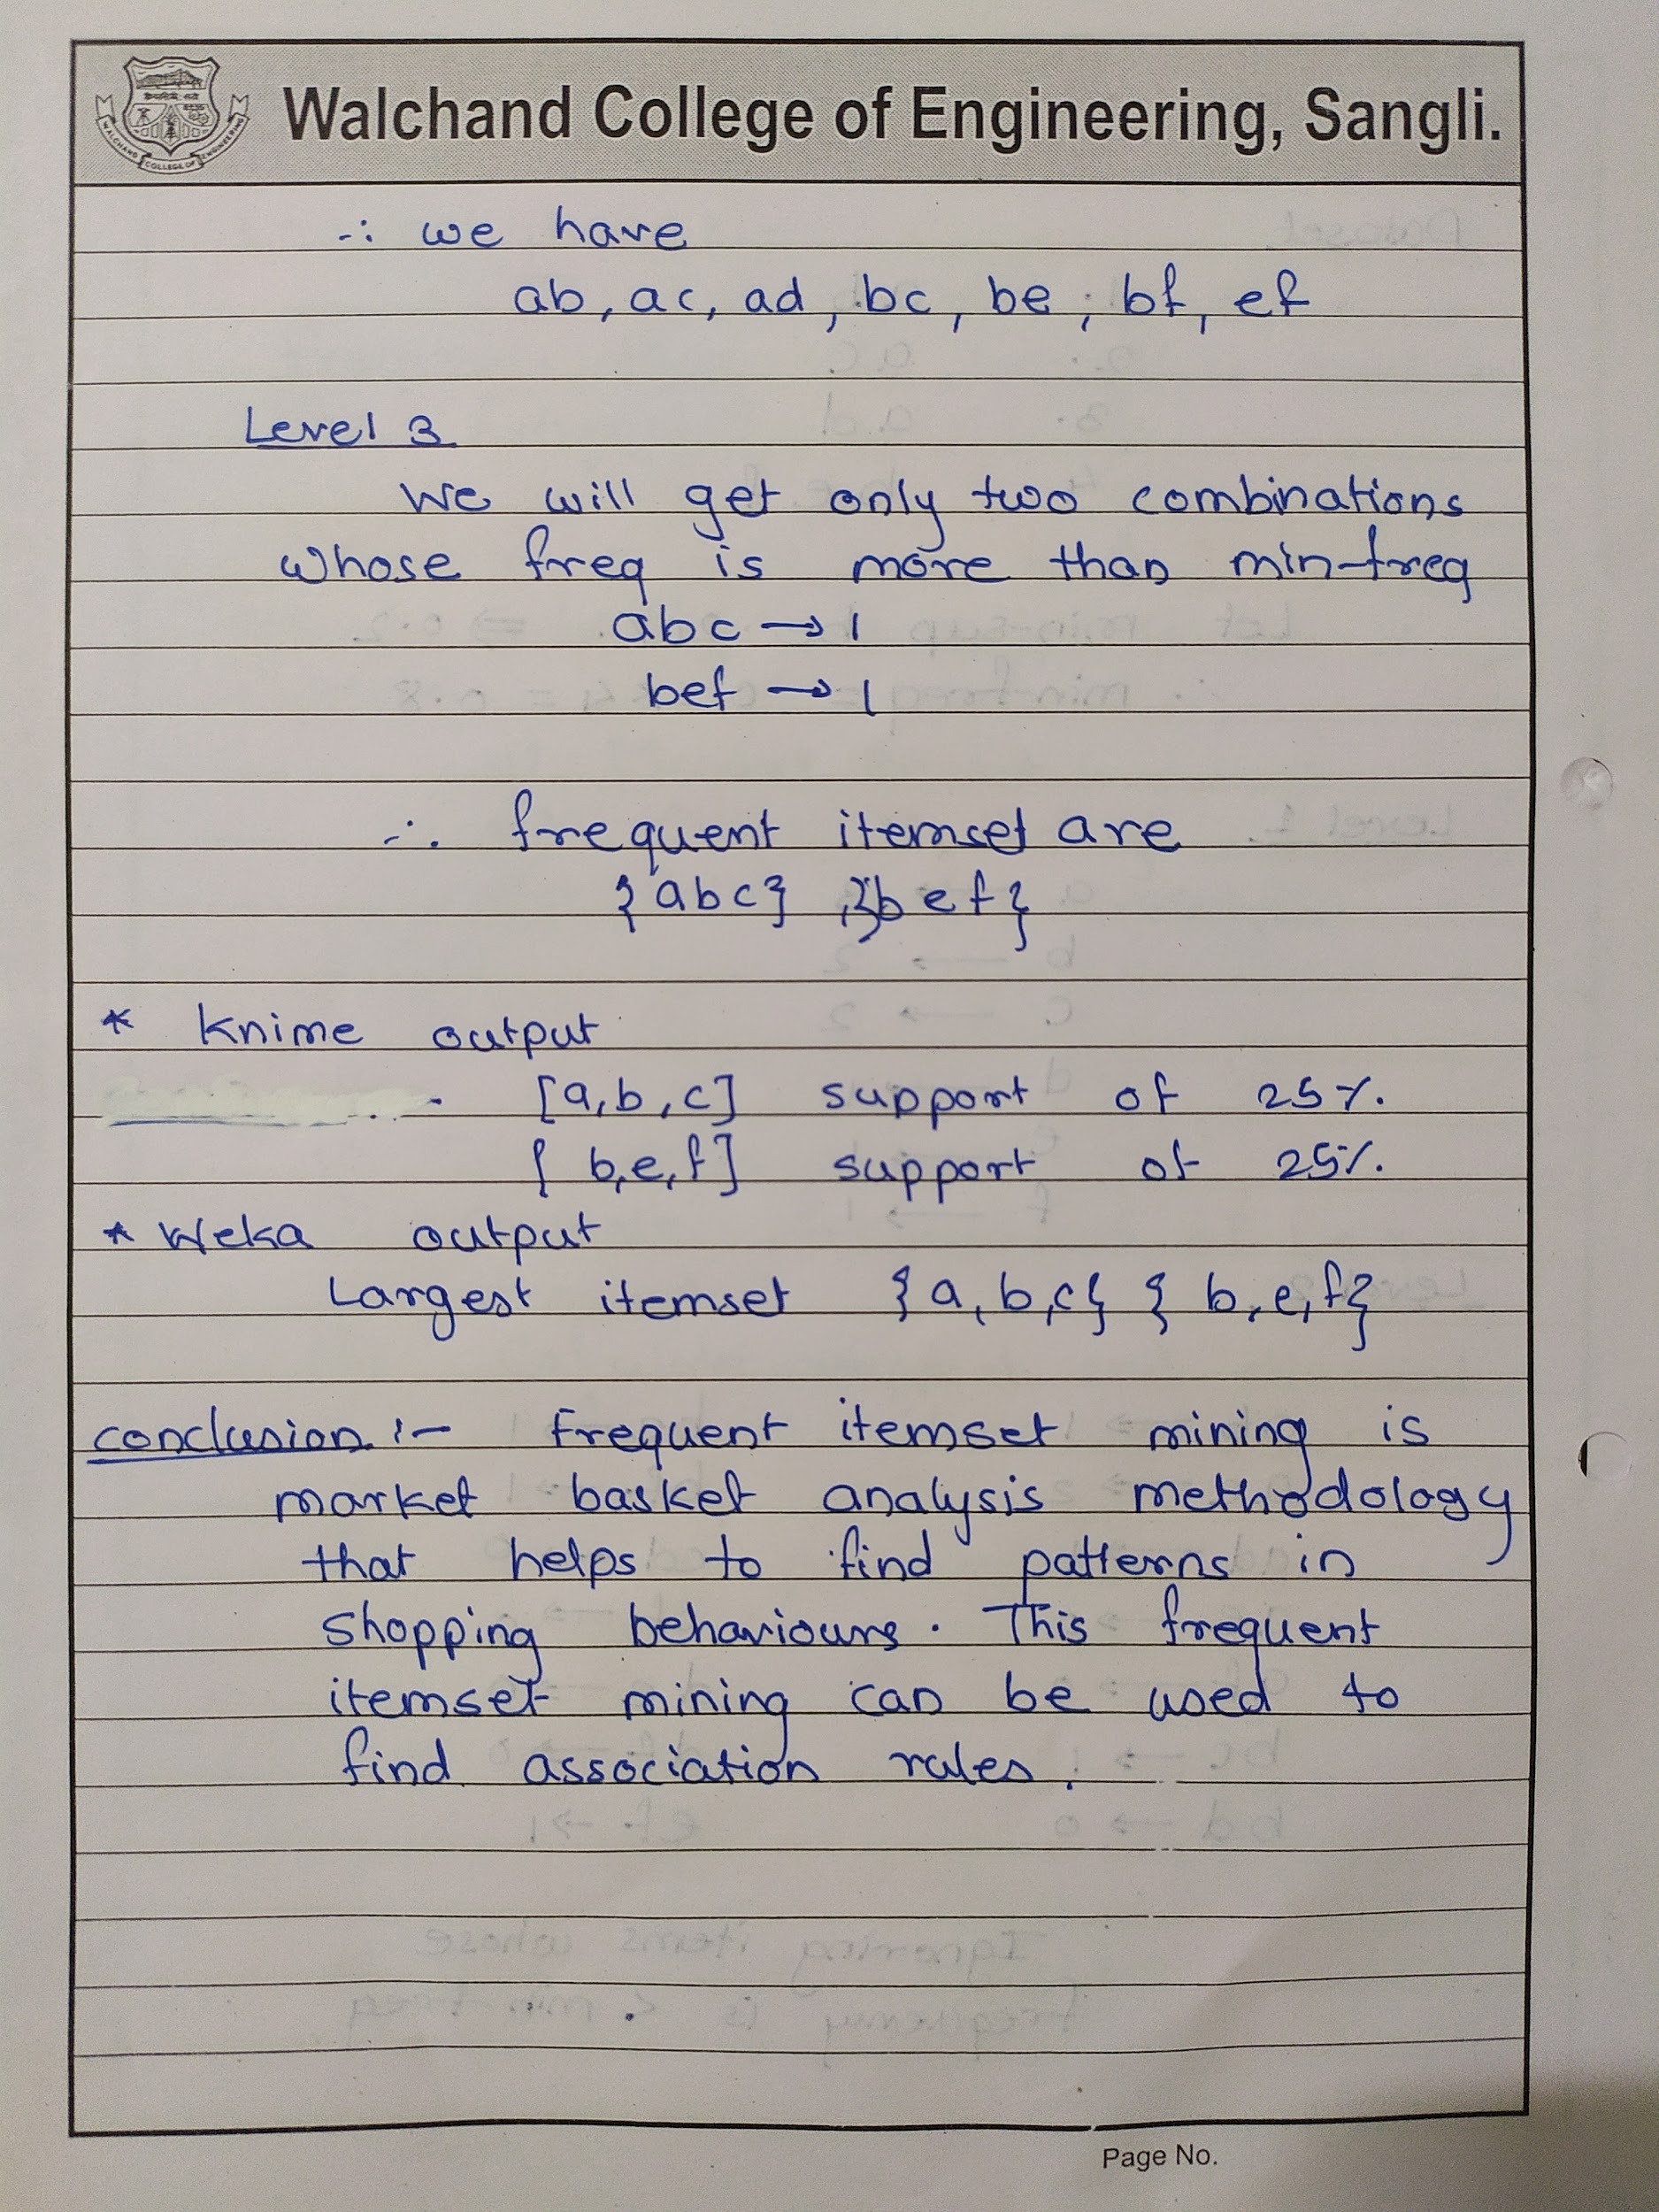 Walchand College of Engineering, Sangli.
∴ we have
ab, ac, ad, bc, be, bf, ef
Level 3
We will get only two combinations
whose freq is more than min-freq
abc → 1
bef → 1
∴ frequent itemset are
{abc}, {bef}
* Knime output
[a,b,c] support of 25%.
[b,e,f] support of 25%.
* Weka output
Largest itemset {a,b,c} {b,e,f}
conclusion :- Frequent itemset mining is
market basket analysis methodology
that helps to find patterns in
shopping behaviours. This frequent
itemset mining can be used to
find association rules.
Page No.